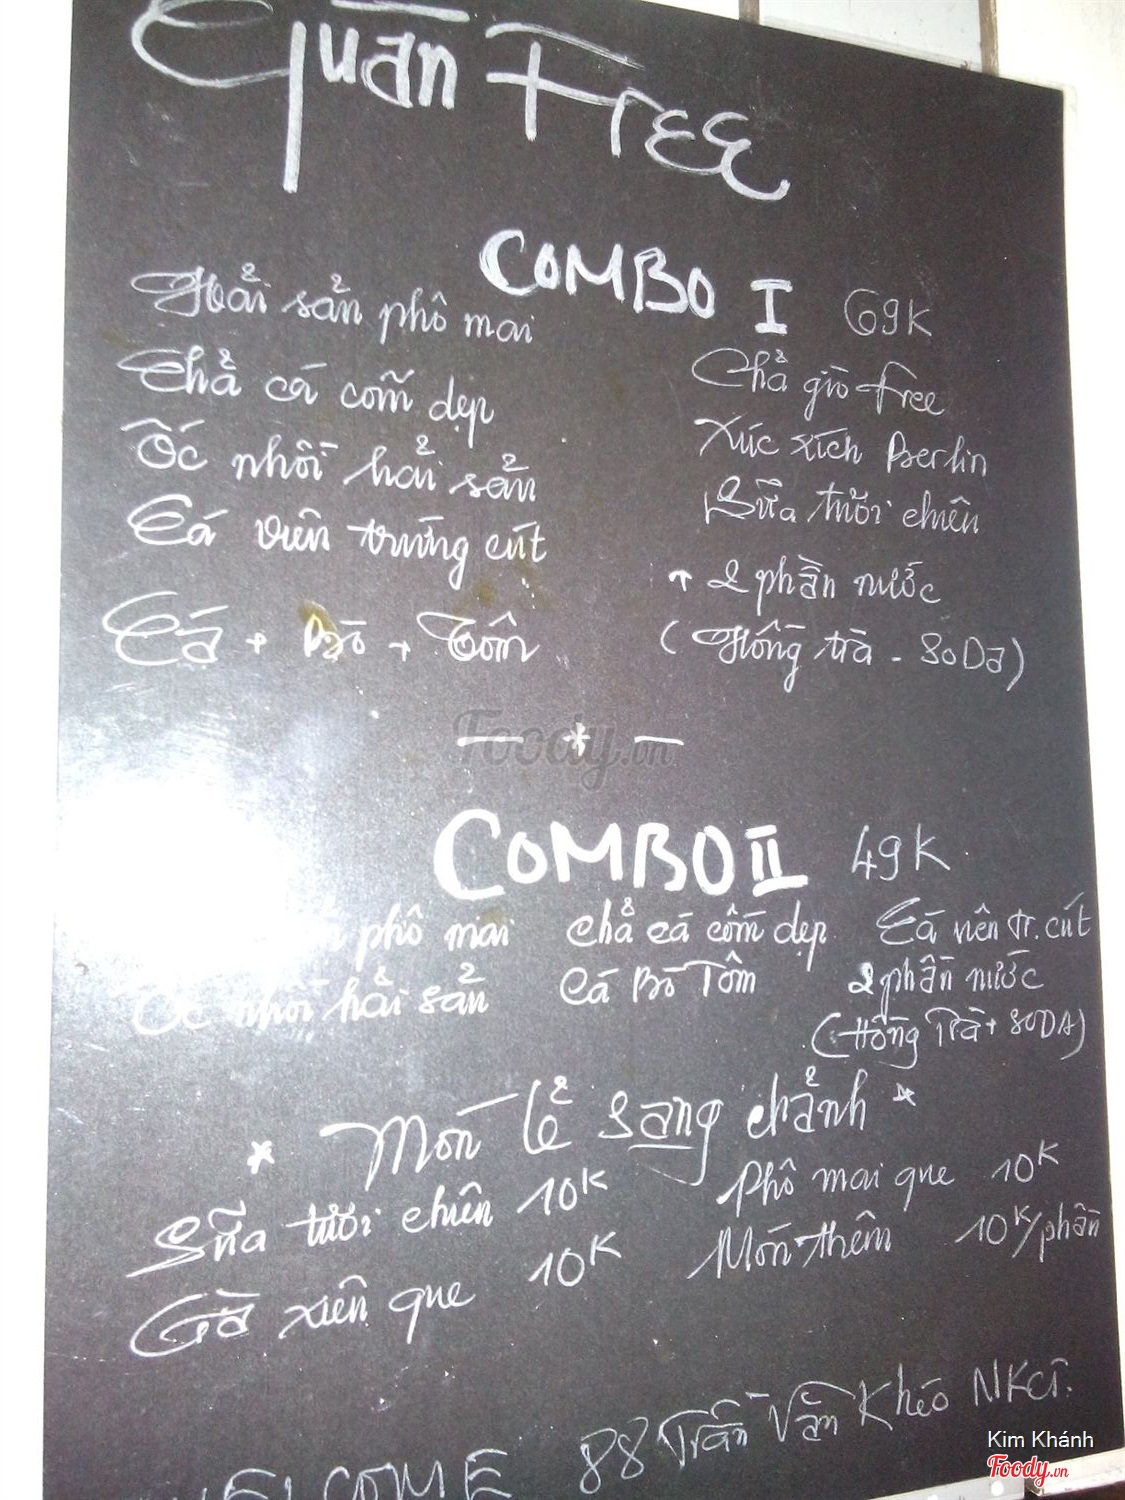 Quán Free
COMBO I 69K
Hải sản phô mai
Chả cá cốm dẹp
Ốc nhồi hải sản
Cá viên trứng cút
Cá + Bò + Tôm
Chả giò free
Xúc xích Berlin
Sữa tươi chiên
+ 2 phần nước
(Hồng trà - SoDa)
Foody.vn
COMBO II 49K
phô mai chả cá cốm dẹp Cá viên tr. cút
Ốc nhồi hải sản Cá Bò Tôm 2 phần nước
(Hồng Trà + SODA)
* Món lẻ sang chảnh *
Sữa tươi chiên 10K Phô mai que 10K
Gà xiên que 10K Món thêm 10K/phần
WELCOME 88 Trần Văn Khéo NKCT.
Kim Khánh
Foody.vn